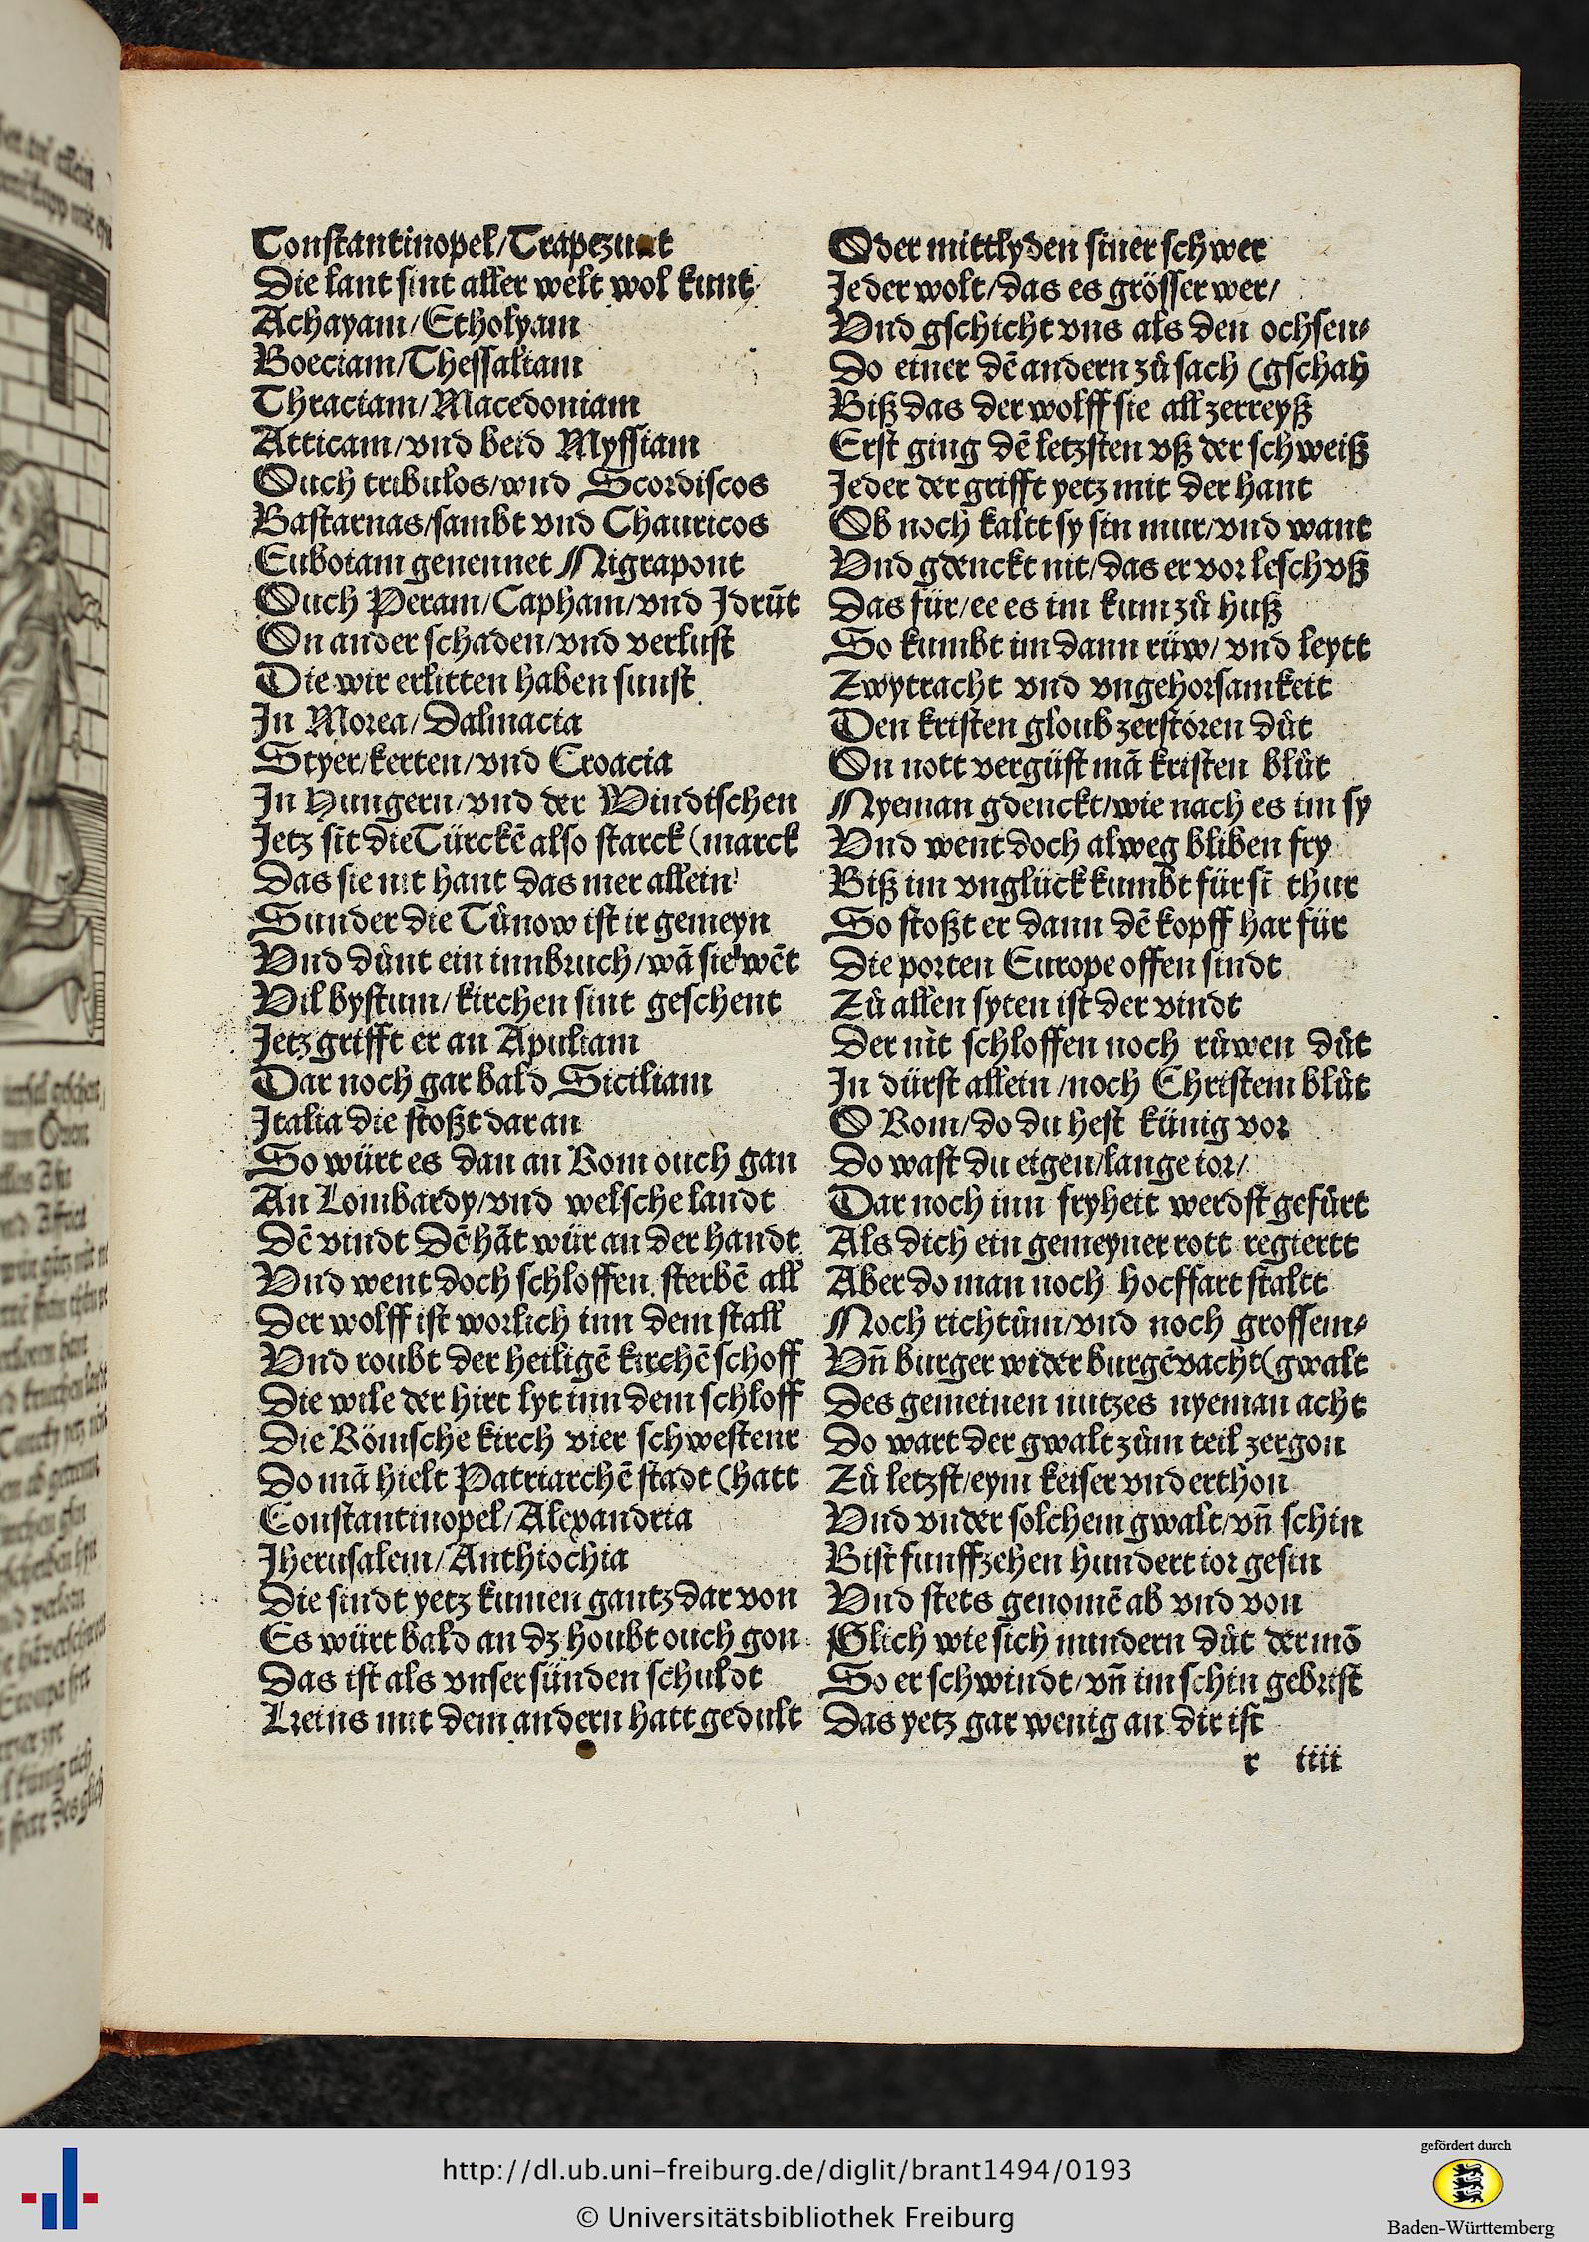 Constantinopel/Trapezunt
Die lant sint aller welt wol kunt
Achayam/Etholyam
Boeciam/Thessaliam
Thraciam/Macedoniam
Atticam/vnd beid Myssiam
Ouch tribulos/vnd Scordiscos
Bastarnas/sambt vnd Thauricos
Euboiam genennet Nigrapont
Ouch Peram/Capham/vnd Jdrūt
On ander schaden/vnd verlust
Die wir erlitten haben sunst
Jn Morea/Dalmacia
Styer/kerten/vnd Croacia
Jn Hungern/vnd der Windtschen
Jetz sīt die Türckē also starck (marck
Das sie nit hant das mer allein
Sunder die Tůnow ist ir gemeyn
Vnd důnt ein innbruch/wā sie wēt
Vil bystum/kirchen sint geschent
Jetz grifft er an Apuliam
Dar noch gar bald Siciliam
Jtalia die stoßt dar an
So würt es dan an Rom ouch gan
An Lombardy/vnd welsche landt
Dē vindt Dē hāt wür an der handt
Vnd went doch schloffen sterbē all
Der wolff ist worlich inn dem stall
Vnd roubt der heiligē kirchē schoff
Die wile der hirt lyt inn dem schloff
Die Römsche kirch vier schwestenr
Do mā hielt Patriarchē stadt (hatt
Constantinopel/Alexandria
Jherusalem/Anthiochia
Die sindt yetz kumen gantz dar von
Es würt bald an dz houbt ouch gon
Das ist als vnser sünden schuldt
Keins mit dem andern hatt gedult
Oder mittlyden siner schwer
Jeder wolt/das es grösser wer/
Vnd gschicht vns als den ochsen⸗
Do einer dē andern zů sach (gschah
Biß das der wolff sie all zerreyß
Erst ging dē letzsten vß der schweiß
Jeder der grifft yetz mit der hant
Ob noch kaltt sy sin mur/vnd want
Vnd gdenckt nit/das er vor lesch vß
Das für/ee es im kum zů huß
So kumbt im dann rüw/vnd leytt
Zwytracht vnd vngehorsamkeit
Den kristen gloub zerstören důt
On nott vergüst mā kristen blůt
Nyeman gdenckt/wie nach es im sy
Vnd went doch alweg bliben fry
Biß im vnglück kumbt für sī thür
So stoßt er dann dē kopff har für
Die porten Europe offen sindt
Zů allen syten ist der vindt
Der nit schloffen noch růwen důt
Jn dürst allein/noch Christem blůt
O Rom/do du hest künig vor
Do wast du eigen/lange ior/
Dar noch inn fryheit werdst gefůrt
Als dich ein gemeyner rott regiertt
Aber do man noch hocffart staltt
Noch richtům/vnd noch grossem⸗
Vn̄ burger wider burgē vacht (gwalt
Des gemeinen nutzes nyeman acht
Do wart der gwalt zům teil zergon
Zů letzst/eym keiser vnderthon
Vnd vnder solchem gwalt/vn̄ schin
Bist funffzehen hundert ior gesin
Vnd stets genomē ab vnd von
Glich wie sich mindern důt der mō
So er schwindt/vn̄ im schin gebrist
Das yetz gar wenig an dir ist
r iiii
http://dl.ub.uni-freiburg.de/diglit/brant1494/0193
© Universitätsbibliothek Freiburg
gefördert durch
Baden-Württemberg